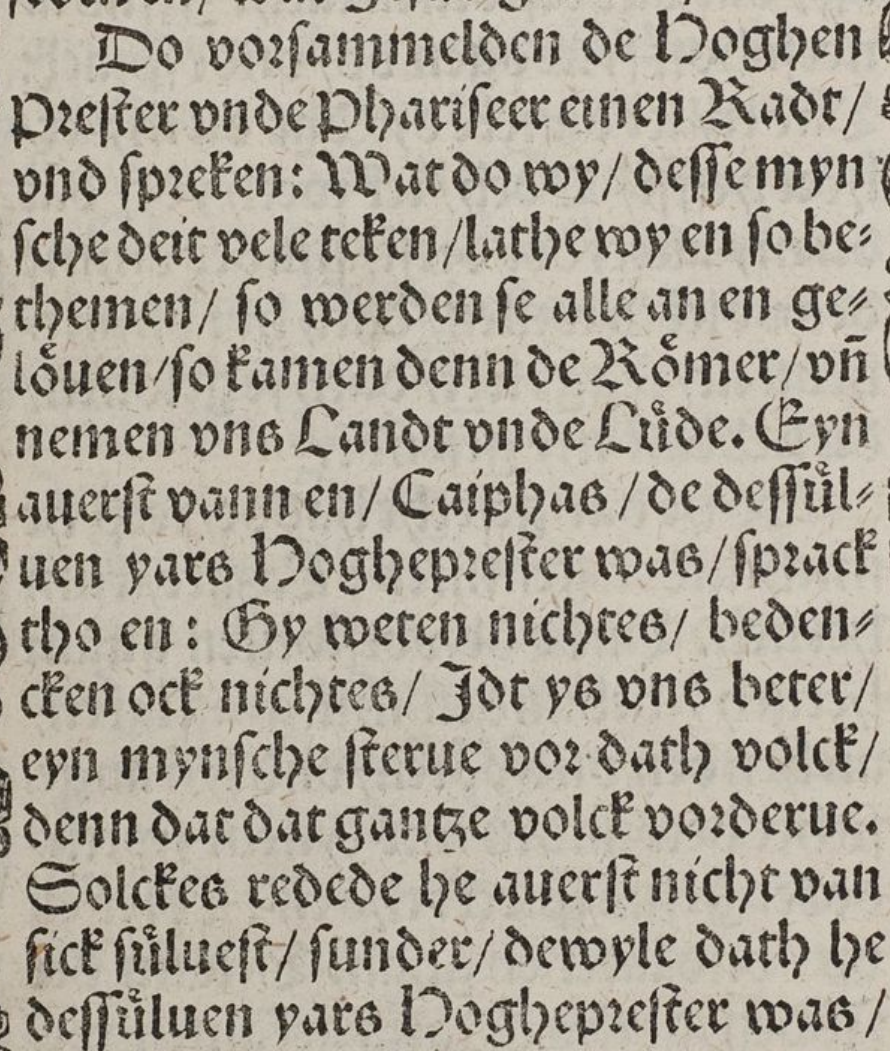 Do vorſammelden de Hoghen
Preſter vnde Phariſeer einen Radt/
vnd ſpreken: Wat do wy/ deſſe myn
ſche deit vele teken/lathe wy en ſo be⸗
themen/ ſo werden ſe alle an en ge⸗
loͤuen/ſo kamen denn de Roͤmer/vn̄
nemen vns Landt vnde Luͤde. Eyn
auerſt vann en/ Caiphas /de deſſuͤl⸗
uen yars Hoghepreſter was/ſprack
tho en: Gy weten nichtes/ beden⸗
cken ock nichtes/ Jdt ys vns beter/
eyn mynſche ſterue vor dath volck/
denn dat dat gantze volck vorderue.
Solckes redede he auerſt nicht van
ſick ſuͤlueſt/ ſunder/ dewyle dath he
deſſuͤluen yars Hoghepreſter was/